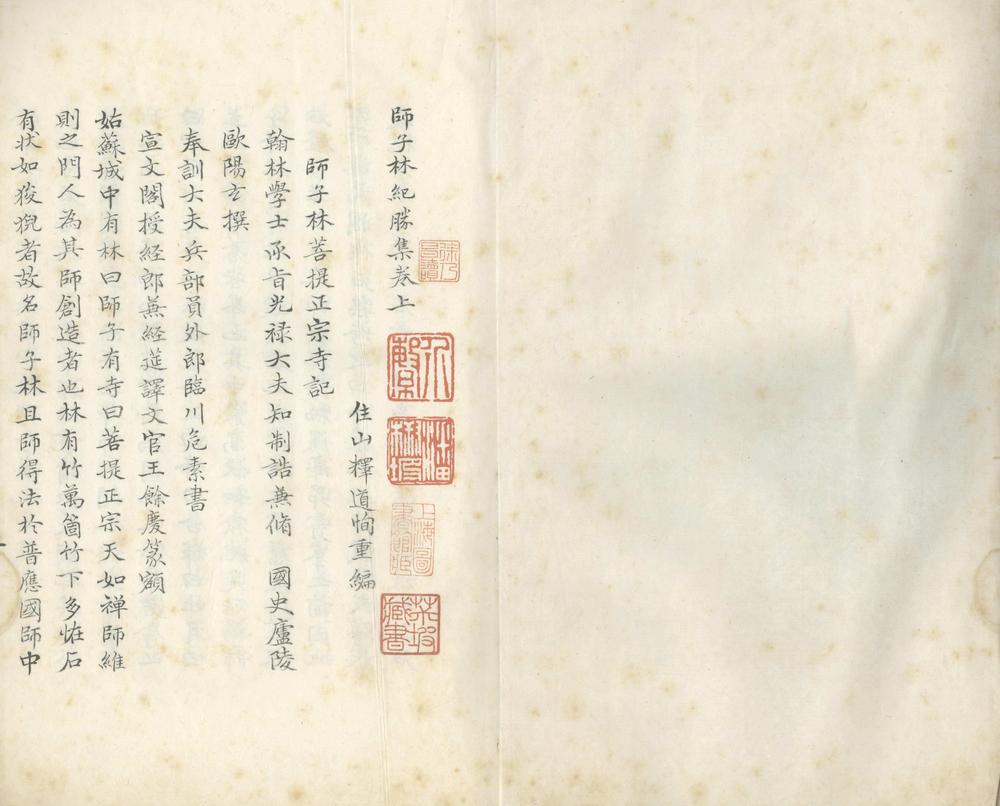 師子林紀勝集卷上
住山釋道恂重編
師子林菩提正宗寺記
翰林學士承旨光禄大夫知制誥兼脩　國史廬陵
歐陽玄撰
奉訓大夫兵部員外郎臨川危素書
宣文閣授経郎兼経莚譯文官王餘慶篆額
姑蘇城中有林曰師子有寺曰菩提正宗天如禅師維
則之門人為其師創造者也林有竹萬箇竹下多恠石
有状如狻猊者故名師子林且師得法於普應國師中
徐乃昌讀
上海圖書館臧